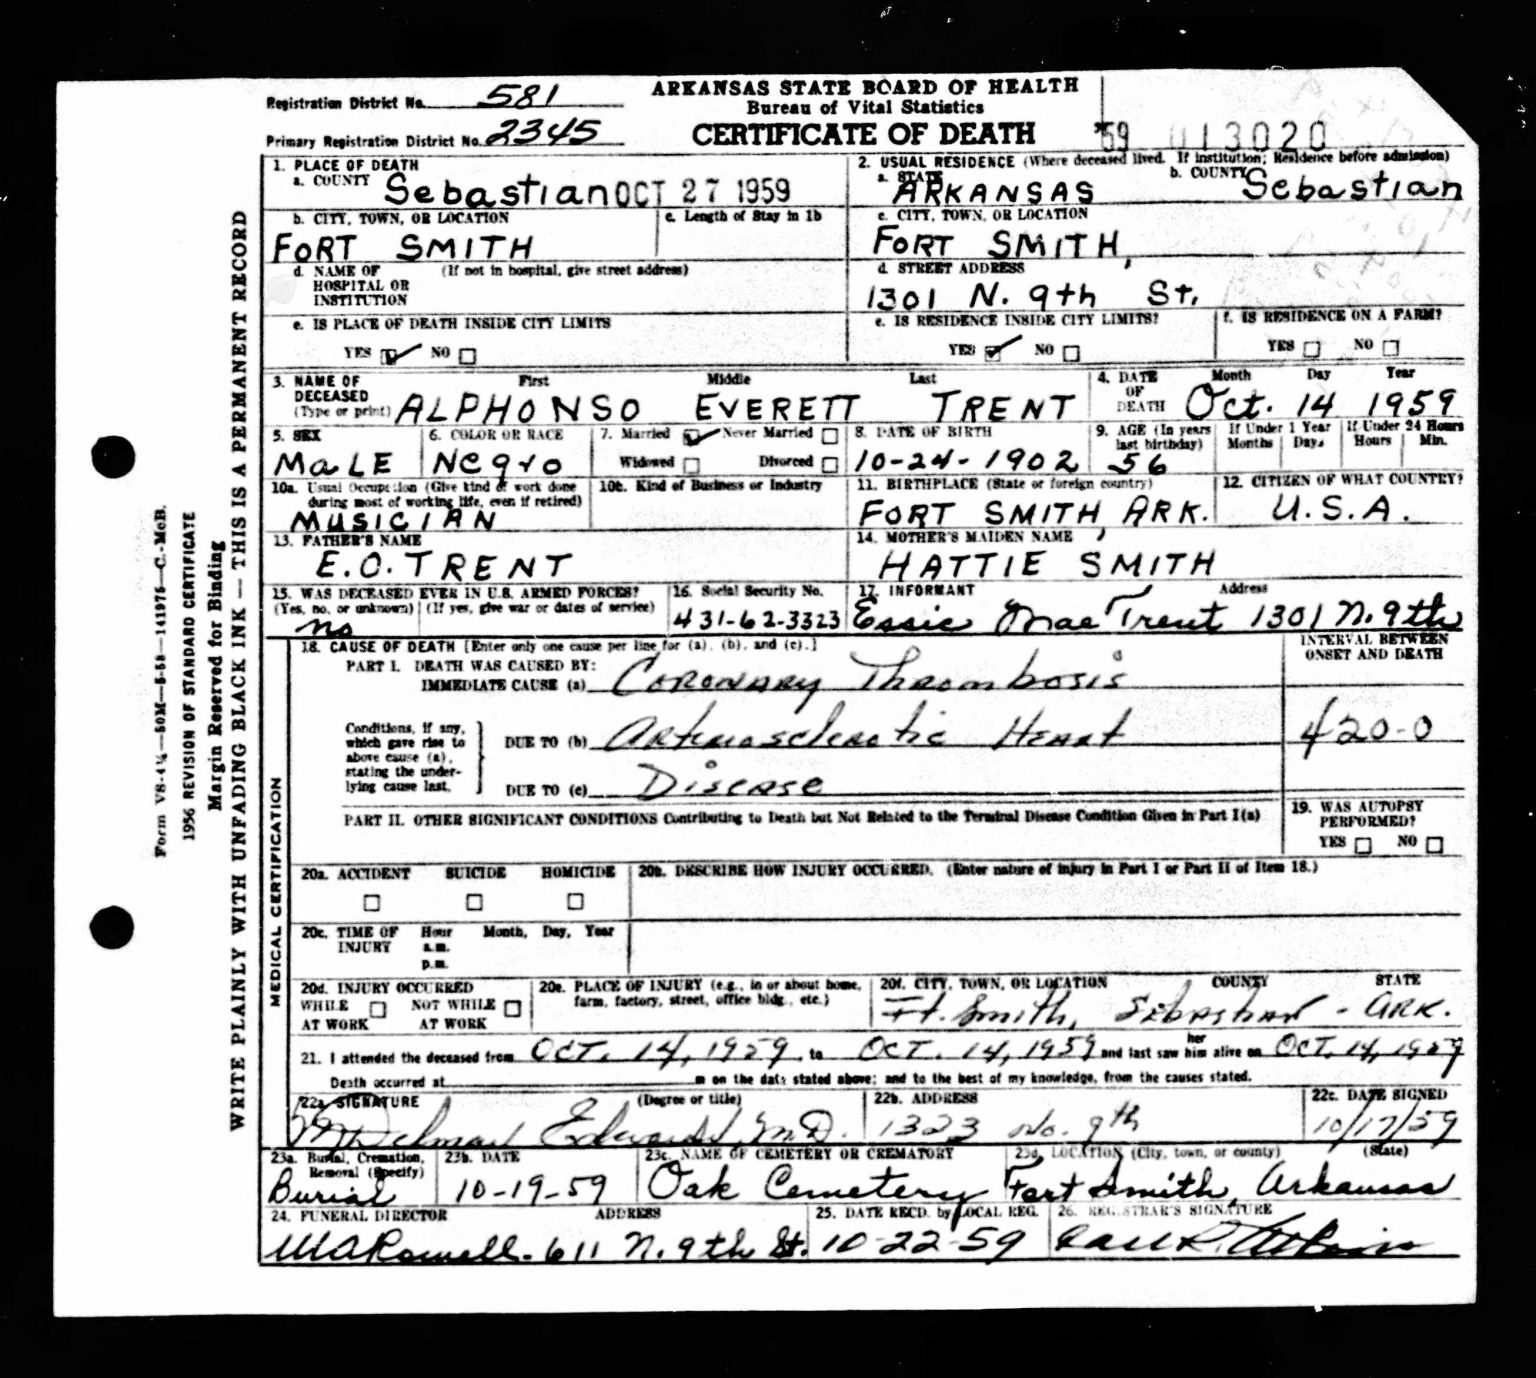 Registration District No. 581
ARKANSAS STATE BOARD OF HEALTH
Bureau of Vital Statistics
Primary Registration District No. 2345
CERTIFICATE OF DEATH
'59 013020
1. PLACE OF DEATH
a. COUNTY Sebastian OCT 27 1959
2. USUAL RESIDENCE (Where deceased lived. If institution; Residence before admission)
a. STATE ARKANSAS b. COUNTY Sebastian
b. CITY, TOWN, OR LOCATION
FORT SMITH
c. Length of Stay in 1b
c. CITY, TOWN, OR LOCATION
FORT SMITH,
d. NAME OF HOSPITAL OR INSTITUTION (If not in hospital, give street address)
d. STREET ADDRESS
1301 N. 9th St.
e. IS PLACE OF DEATH INSIDE CITY LIMITS
YES NO
e. IS RESIDENCE INSIDE CITY LIMITS?
YES NO
f. IS RESIDENCE ON A FARM?
YES NO
3. NAME OF DECEASED (Type or print)
First Middle Last
ALPHONSO EVERETT TRENT
4. DATE OF DEATH
Month Day Year
Oct. 14 1959
5. SEX
MaLE
6. COLOR OR RACE
Negro
7. Married Never Married
Widowed Divorced
8. DATE OF BIRTH
10-24-1902
9. AGE (In years last birthday)
56
If Under 1 Year
Months Days
If Under 24 Hours
Hours Min.
10a. Usual Occupation (Give kind of work done during most of working life, even if retired)
MUSICIAN
10b. Kind of Business or Industry
11. BIRTHPLACE (State or foreign country)
FORT SMITH, ARK.
12. CITIZEN OF WHAT COUNTRY?
U.S.A.
13. FATHER'S NAME
E.O. TRENT
14. MOTHER'S MAIDEN NAME
HATTIE SMITH
15. WAS DECEASED EVER IN U.S. ARMED FORCES?
(Yes, no, or unknown) (If yes, give war or dates of service)
no
16. Social Security No.
431-62-3323
17. INFORMANT Address
Essie Mae Trent 1301 N. 9th
18. CAUSE OF DEATH [Enter only one cause per line for (a), (b), and (c).]
INTERVAL BETWEEN ONSET AND DEATH
PART I. DEATH WAS CAUSED BY:
IMMEDIATE CAUSE (a) Coronary Thrombosis
Conditions, if any, which gave rise to above cause (a), stating the underlying cause last.
DUE TO (b) Arteriosclerotic Heart
420-0
DUE TO (c) Disease
PART II. OTHER SIGNIFICANT CONDITIONS Contributing to Death but Not Related to the Terminal Disease Condition Given in Part I(a)
19. WAS AUTOPSY PERFORMED?
YES NO
20a. ACCIDENT SUICIDE HOMICIDE
20b. DESCRIBE HOW INJURY OCCURRED. (Enter nature of injury in Part I or Part II of Item 18.)
20c. TIME OF INJURY
Hour Month, Day, Year
a.m.
p.m.
20d. INJURY OCCURRED
WHILE AT WORK NOT WHILE AT WORK
20e. PLACE OF INJURY (e.g., in or about home, farm, factory, street, office bldg., etc.)
20f. CITY, TOWN, OR LOCATION COUNTY STATE
Ft. Smith, Sebastian - ARK.
21. I attended the deceased from OCT. 14, 1959, to OCT. 14, 1959 and last saw her him alive on OCT. 14, 1959
Death occurred at m on the date stated above; and to the best of my knowledge, from the causes stated.
22a. SIGNATURE (Degree or title)
Edwards, M.D.
22b. ADDRESS
1323 No. 9th
22c. DATE SIGNED
10/17/59
23a. Burial, Cremation, Removal (Specify)
Burial
23b. DATE
10-19-59
23c. NAME OF CEMETERY OR CREMATORY
Oak Cemetery
23d. LOCATION (City, town, or county) (State)
Fort Smith, Arkansas
24. FUNERAL DIRECTOR ADDRESS
Rowell - 611 N. 9th St.
25. DATE RECD. by LOCAL REG.
10-22-59
26. REGISTRAR'S SIGNATURE
MEDICAL CERTIFICATION
WRITE PLAINLY WITH UNFADING BLACK INK — THIS IS A PERMANENT RECORD
Margin Reserved for Binding
1956 REVISION OF STANDARD CERTIFICATE